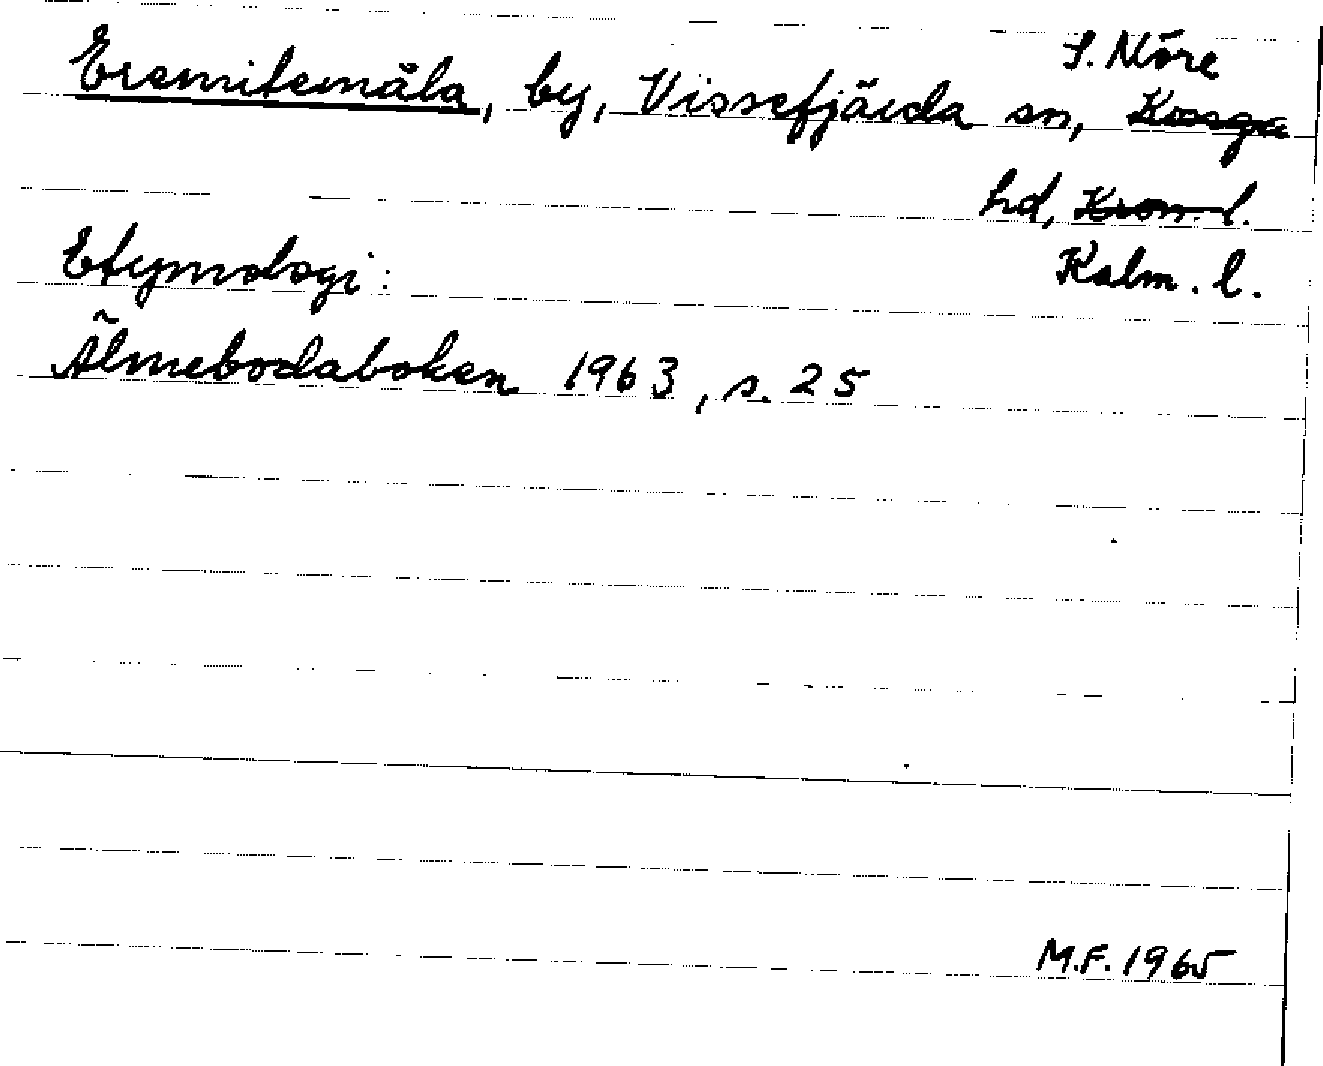 S. Möre
Eremitemåla, by, Vissefjärda sn, Konga
hd, Kron. l.
Etymologi:
Kalm. l.
Älmebodaboken 1963, s. 25
M.F. 1965